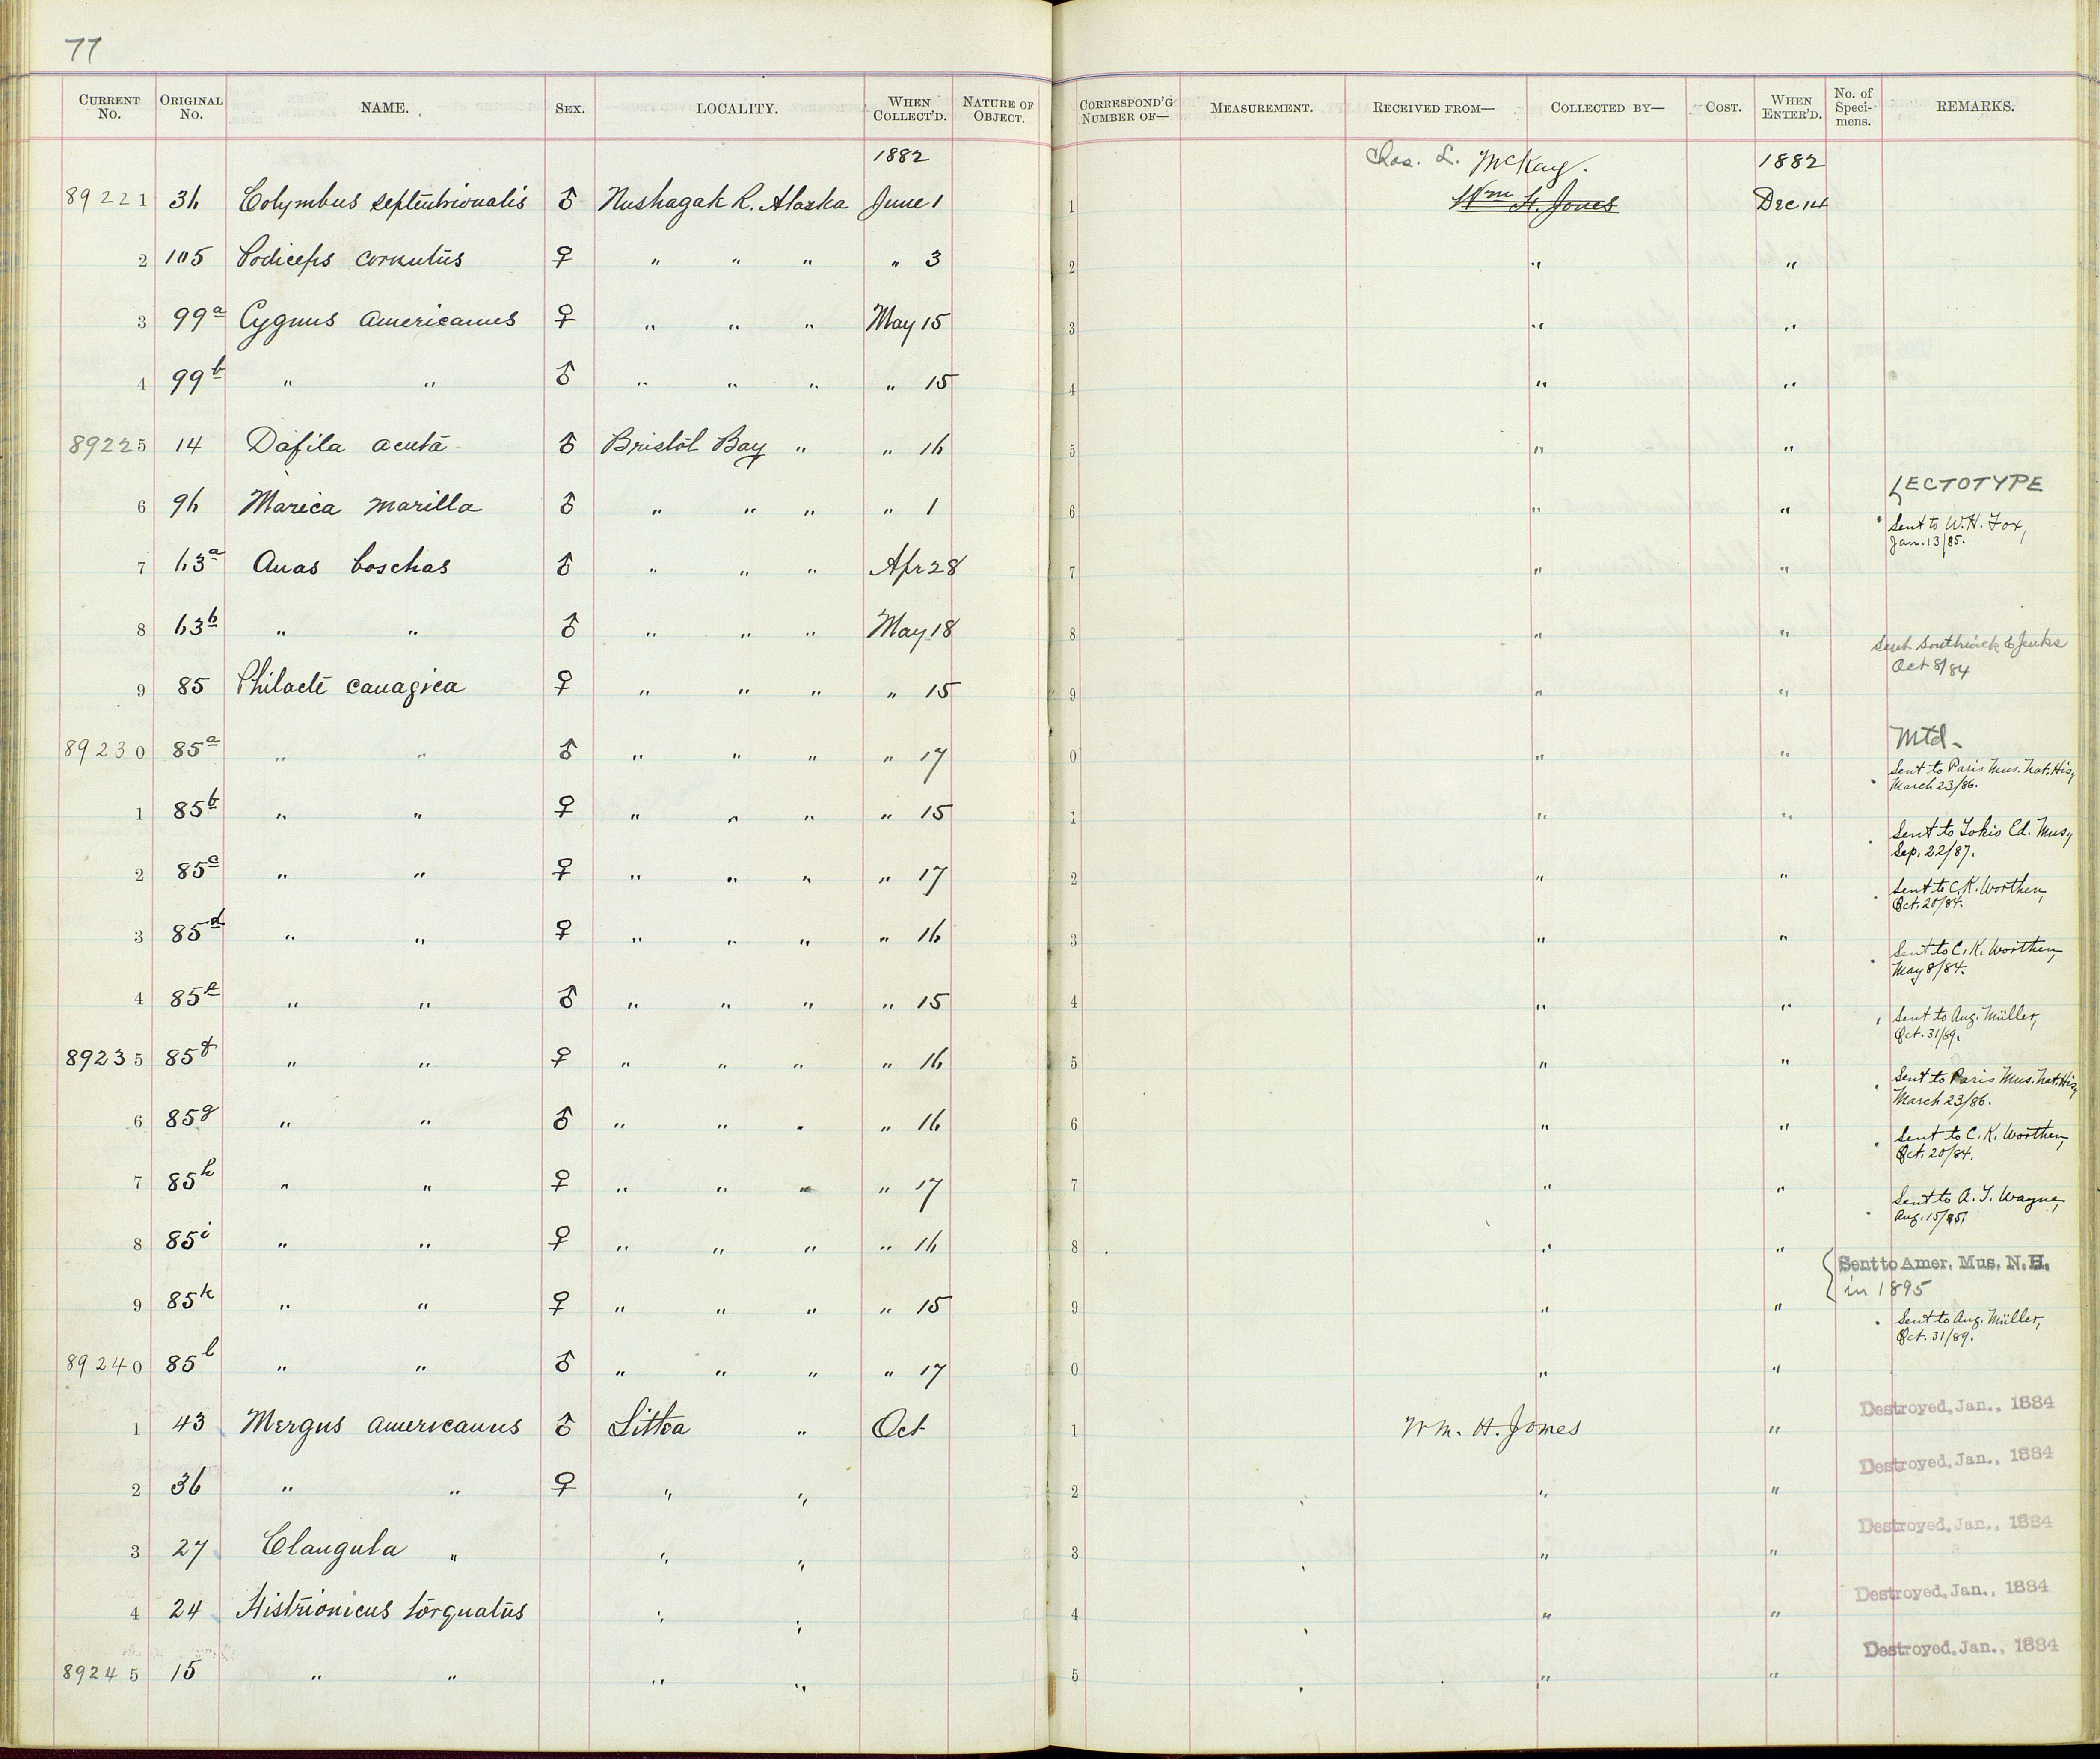 77
CURRENT No. ORIGINAL No. NAME. SEX. LOCALITY. WHEN COLLECT'D. NATURE OF OBJECT. CORRESPOND'G NUMBER OF— MEASUREMENT. RECEIVED FROM— COLLECTED BY— COST. WHEN ENTER'D. No. of Speci-mens. REMARKS.
1882 Chas. L. McKay. 1882
89221 36 Colymbus septentrionalis ♂ Nushagak R. Alaska June 1 1 Wm H. Jones Dec 14
2 105 Podiceps cornutus ♀ " " " " 3 2 " "
3 99a Cygnus americanus ♀ " " " May 15 3 " "
4 99b " " ♂ " " " " 15 4 " "
89225 14 Dafila acuta ♂ Bristol Bay " " 16 5 " "
LECTOTYPE
6 96 Marica marilla ♂ " " " " 1 6 " "
Sent to W. H. Fox,
Jan. 13/85.
7 63a Anas boschas ♂ " " " Apr 28 7 " "
8 63b " " ♂ " " " May 18 8 " "
Sent Southwick & Jenks
Oct 8/84
9 85 Philacte canagica ♀ " " " " 15 9 " "
Mtd-
89230 85a " " ♂ " " " " 17 0 " "
Sent to Paris Mus. Nat. His,
March 23/86.
1 85b " " ♀ " " " " 15 1 " "
Sent to Tokio Ed. Mus,
Sep. 22/87.
2 85c " " ♀ " " " " 17 2 " "
Sent to C. K. Worthen,
Oct. 20/84.
3 85d " " ♀ " " " " 16 3 " "
Sent to C. K. Worthen,
May 8/84.
4 85e " " ♂ " " " " 15 4 " "
Sent to Aug. Müller,
Oct. 31/89.
89235 85f " " ♀ " " " " 16 5 " "
Sent to Paris Mus. Nat. His,
March 23/86.
6 85g " " ♂ " " " " 16 6 " "
Sent to C. K. Worthen,
Oct. 20/84.
7 85h " " ♀ " " " " 17 7 " "
Sent to A. T. Wayne,
Aug. 15/85,
8 85i " " ♀ " " " " 16 8 " "
Sent to Amer. Mus. N. H.
in 1895
9 85k " " ♀ " " " " 15 9 " "
Sent to Aug. Müller,
Oct. 31/89.
89240 85l " " ♂ " " " " 17 0 " "
Destroyed, Jan., 1884
1 43 Mergus americanus ♂ Sitka " Oct 1 Wm. H. Jones "
Destroyed, Jan., 1884
2 36 " " ♀ " " 2 " "
Destroyed, Jan., 1884
3 27 Clangula " " " 3 " "
Destroyed, Jan., 1884
4 24 Histrionicus torquatus " " 4 " "
Destroyed, Jan., 1884
89245 15 " " " " 5 " "